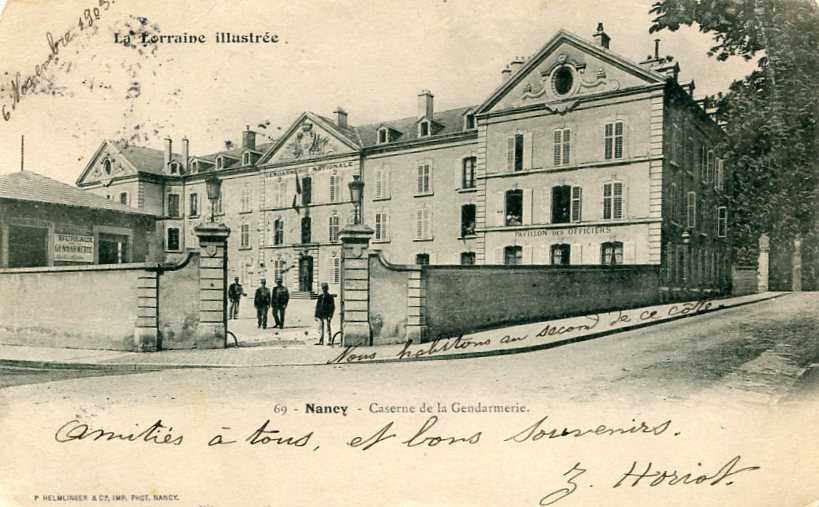 6 Novembre 1903.
La Lorraine illustrée
GENDARMERIE NATIONALE
BUREAUX
GENDARMERIE
PAVILLON DES OFFICIERS
Nous habitons au second de ce côté.
69 - Nancy - Caserne de la Gendarmerie.
Amitiés à tous, et bons souvenirs.
Z. Horiot
P HELMLINGER & Cie, IMP. PHOT. NANCY.